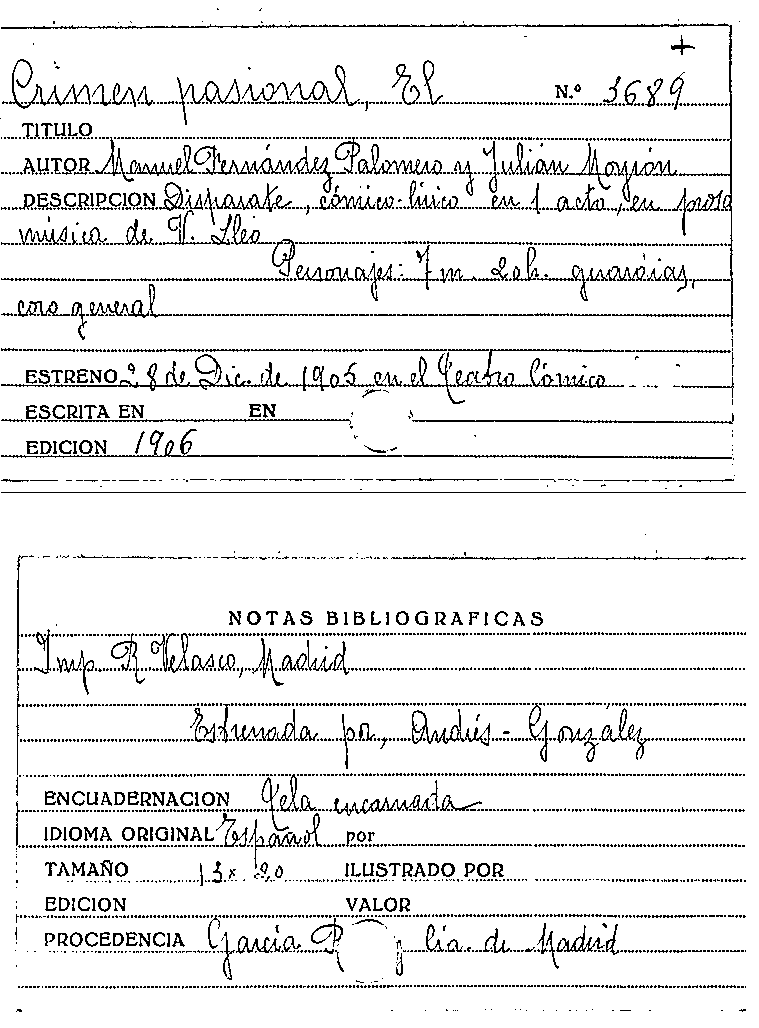 +
Crimen pasional, El N.º 3689
TITULO
AUTOR Manuel Fernández Palomero y Julián Moyrón
DESCRIPCION Disparate, cómico-lírico en 1 acto, en prosa
música de V. Lleó
Personajes: 7 m. 2 oh. guardias,
coro general
ESTRENO 28 de Dic. de 1905 en el Teatro Cómico
ESCRITA EN EN
EDICION 1906
NOTAS BIBLIOGRAFICAS
Imp. R Velasco, Madrid
Estrenada por, Andrés - González
ENCUADERNACION Tela encarnada
IDIOMA ORIGINAL Español por
TAMAÑO 13 x 20 ILUSTRADO POR
EDICION VALOR
PROCEDENCIA García cía. de Madrid